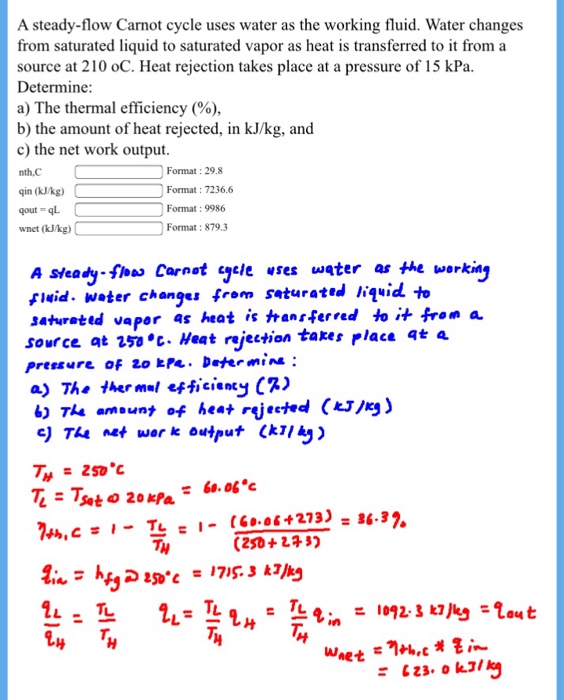 A steady-flow Carnot cycle uses water as the working fluid. Water changes
from saturated liquid to saturated vapor as heat is transferred to it from a
source at 210 oC. Heat rejection takes place at a pressure of 15 kPa.
Determine:
a) The thermal efficiency (%),
b) the amount of heat rejected, in kJ/kg, and
c) the net work output.
nth,C Format : 29.8
qin (kJ/kg) Format : 7236.6
qout = qL Format : 9986
wnet (kJ/kg) Format : 879.3
A steady-flow Carnot cycle uses water as the working
fluid. Water changes from saturated liquid to
saturated vapor as heat is transferred to it from a
source at 250°C. Heat rejection takes place at a
pressure of 20 kPa. Determine :
a) The thermal efficiency (%)
b) The amount of heat rejected (kJ/kg)
c) The net work output (kJ/kg)
TH = 250°C
TL = Tsat @ 20kPa = 60.06°C
ηth,C = 1 - TL/TH = 1 - (60.06+273)/(250+273) = 36.3%
qin = hfg @ 250°C = 1715.3 kJ/kg
qL/qH = TL/TH qL = TL/TH qH = TL/TH qin = 1092.3 kJ/kg = qout
Wnet = ηth,c * qin
= 623.0 kJ/kg